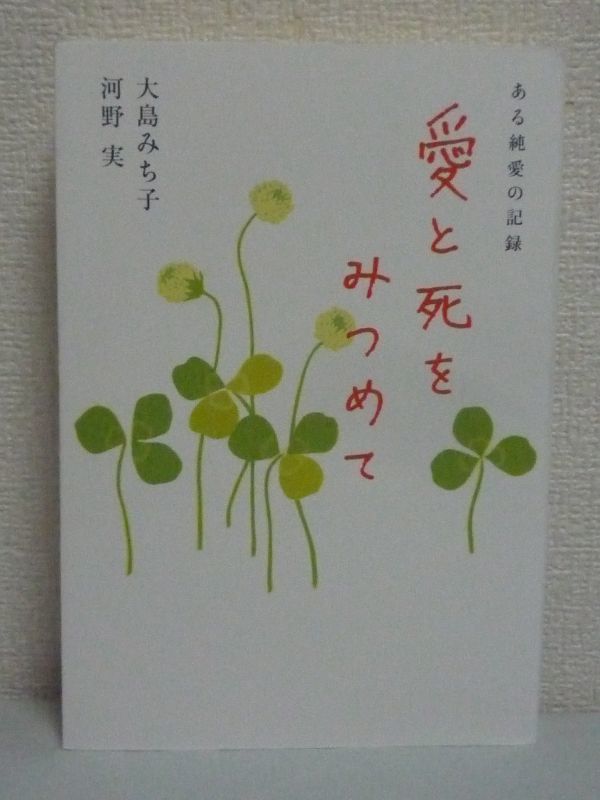 ある純愛の記録
愛と死を
みつめて
大島みち子
河野 実